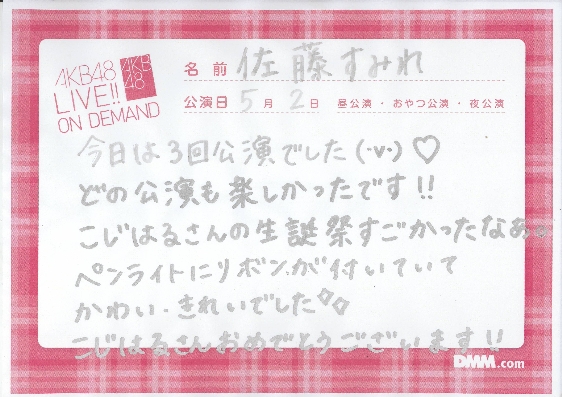 AKB48
LIVE!!
ON DEMAND
AKB
48
名前 佐藤すみれ
公演日 5月2日 昼公演・おやつ公演・夜公演
今日は3回公演でした(・v・)♡
どの公演も楽しかったです!!
こじはるさんの生誕祭すごかったなぁ。
ペンライトにリボンが付いていて
かわい・きれいでした
こじはるさんおめでとうございます!!
DMM.com